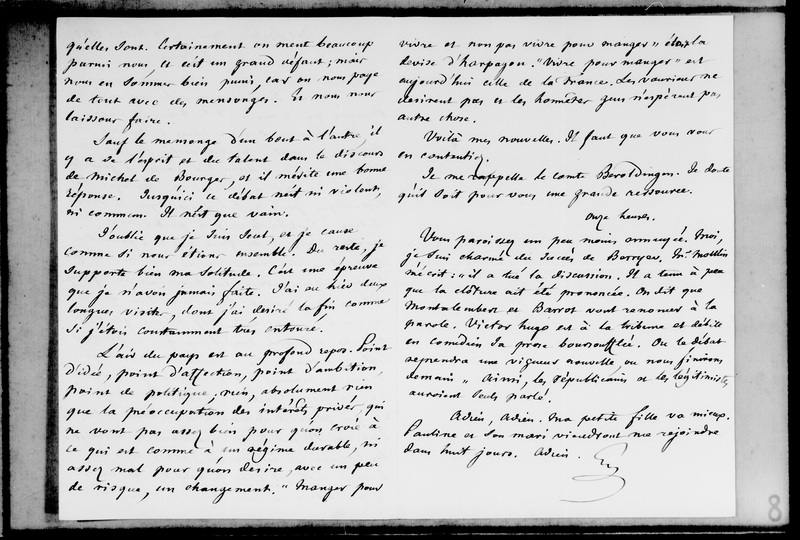 qu'elles sont. Certainement on ment beaucoup
parmi nous et c'est un grand défaut ; mais
nous en sommes bien punis, car on nous paye
de tout avec des mensonges. Et nous nous
laissons faire.
Sauf le mensonge d'un bout à l'autre, il
y a de l'esprit et du talent dans le discours
de Michel de Bourges, et il mérite une bonne
réponse. Jusqu'ici ce débat n'est ni violent,
ni commun. Il n'est que vain.
J'oublie que je suis seul, et je cause
comme si nous étions ensemble. Du reste, je
supporte bien ma solitude. C'est une épreuve
que je n'avois jamais faite. J'ai eu hier deux
longues visites, dont j'ai désiré la fin comme
si j'étois constamment très entouré.
L'air du pays est au profond repos. Point
d'idée, point d'affection, point d'ambition,
point de politique, rien, absolument rien
que la préoccupation des intérêts privés, qui
ne vont pas assez bien pour qu'on croie à
ce qui est comme à un régime durable, ni
assez mal pour qu'on désire, avec un peu
de risque, un changement. " Manger pour
vivre et non pas vivre pour manger " étoit la
devise d'harpagon. " Vivre pour manger " est
aujourd'hui celle de la France. Les vauriens ne
desirent pas et les honnêtes gens n'espèrent pas
autre chose.
Voilà mes nouvelles. Il faut que vous vous
en contentiez.
Je me rappelle le comte Beroldingen. Je doute
qu'il soit pour vous une grande ressource.
Onze heures.
Vous paroissez un peu moins ennuyée. Moi,
je suis charmé du succès de Berryer. Mr.
m'écrit : " il a tué la discussion. Il a tenu à peu
que la clôture ait été prononcée. On dit que
Montalembert et Barrot vont renoncer à la
parole. Victor hugo est à la tribune et débite
en comédien sa prose boursoufflée. Ou le débat
reprendra une vigueur nouvelle ou nous finirons
demain " Ainsi, les républicains et les légitimistes
auroient seuls parlé.
Adieu, Adieu. Ma petite fille va mieux.
Pauline et son mari viendront me rejoindre
dans huit jours. Adieu.
8